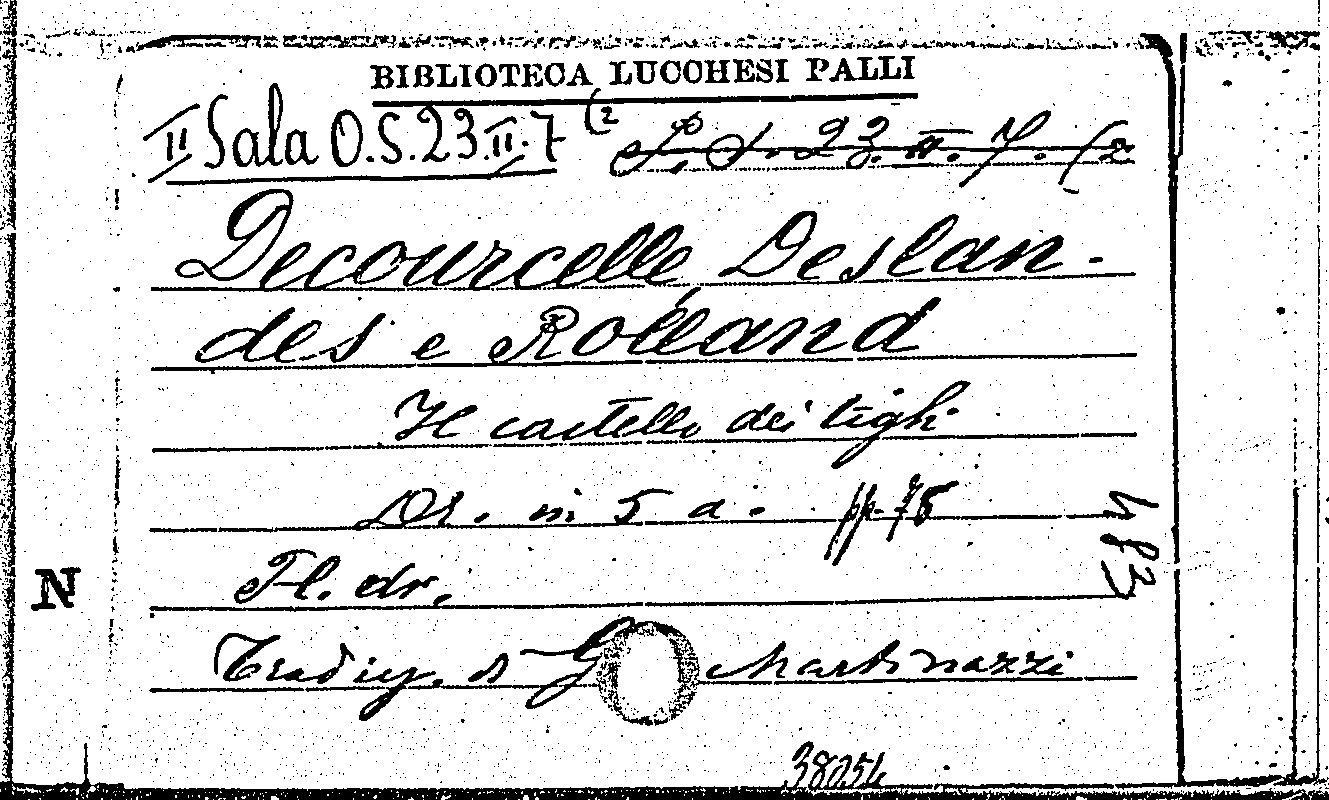 BIBLIOTECA LUCCHESI PALLI
II Sala O.S.23.II.7 (2
S. S. 23. II. 7. (2
Decourcelle Deslan-
des e Rolland
Il castello dei tigli
Dr. in 5 a. pp. 75
483
Fl. dr.
N
Traduz. di G Martinazzi
38254